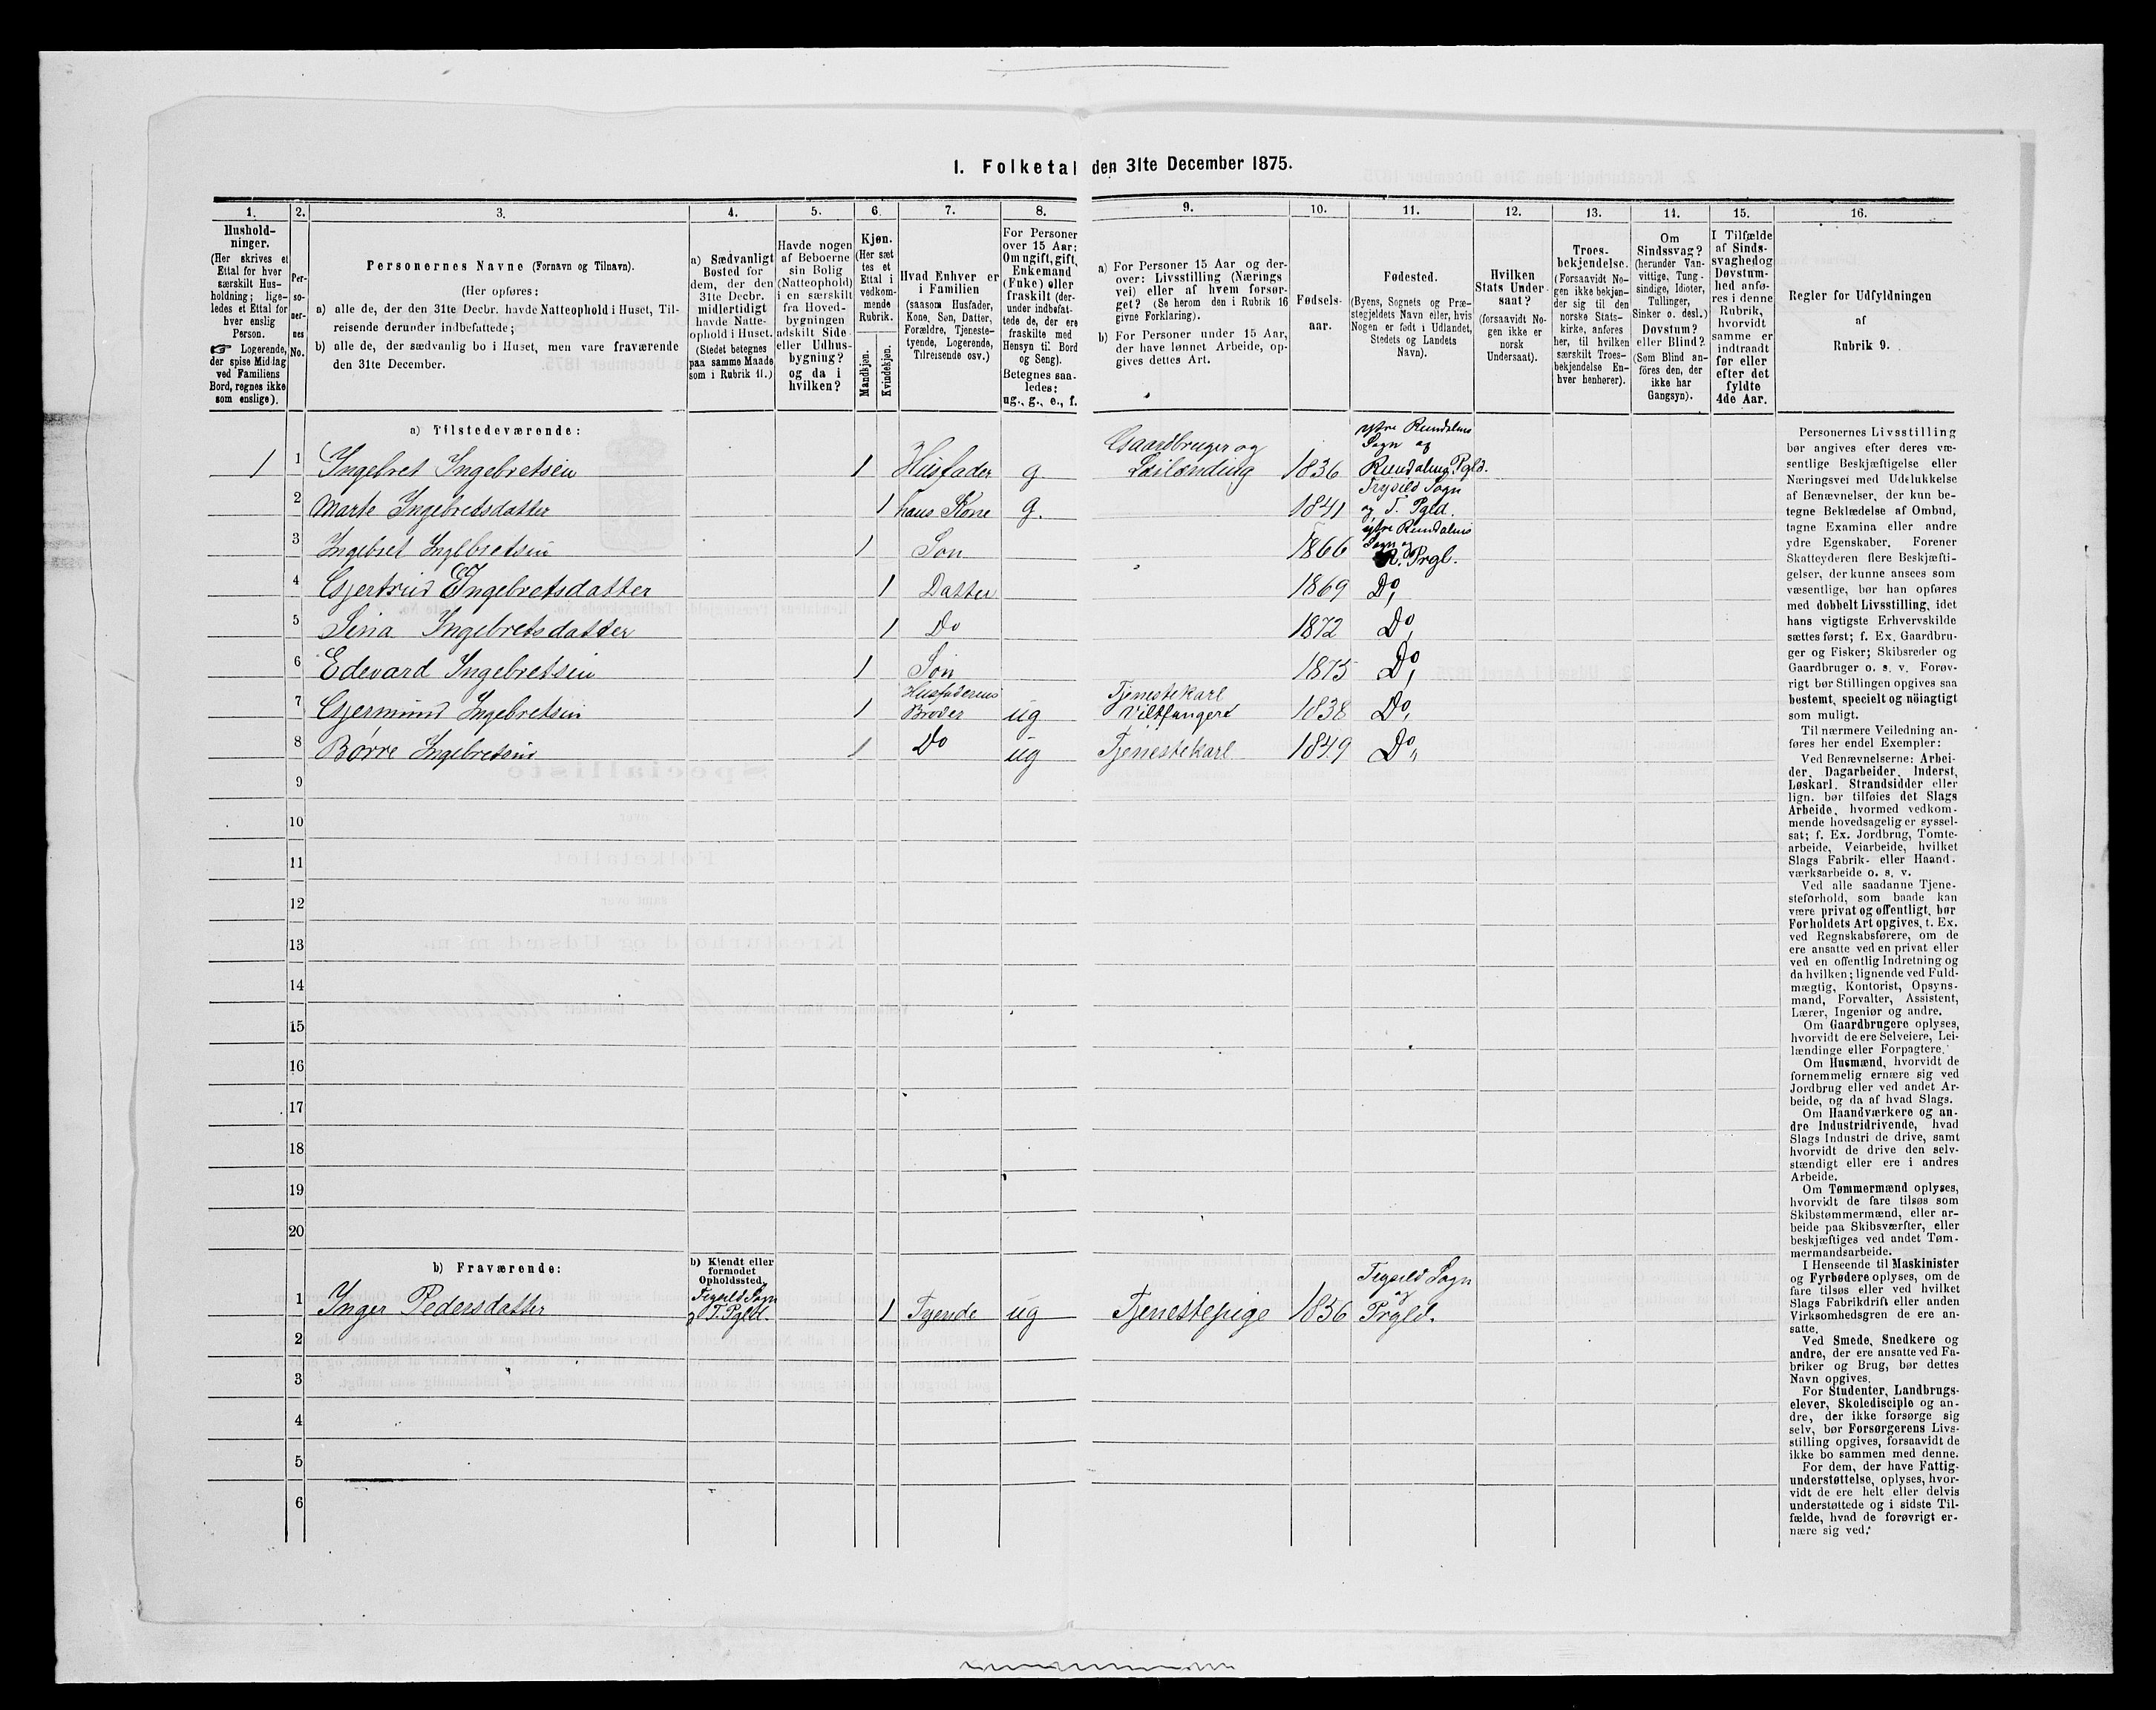 I. Folketal den 31te December 1875.
1. 2. 3. 4. 5. 6. 7. 8. 9. 10. 11. 12. 13. 14. 15. 16.
Hushold-
ninger.
(Her skrives et
Ettal for hver
særskilt Hus-
holdning; lige-
ledes et Ettal for
hver enslig
Person.
☞ Logerende,
der spise Middag
ved Familiens
Bord, regnes ikke
som enslige).
Per-
so-
ner-
nes
No.
Personernes Navne (Fornavn og Tilnavn).
(Her opføres:
a) alle de, der den 31te Decbr. havde Natteophold i Huset, Til-
reisende derunder indbefattede;
b) alle de, der sædvanlig bo i Huset, men vare fraværende
den 31te December.
a) Sædvanligt
Bosted for
dem, der den
31te Decbr.
midlertidigt
havde Natte-
ophold i Huset.
(Stedet betegnes
paa samme Maade
som i Rubrik 11.)
Havde nogen
af Beboerne
sin Bolig
(Natteophold)
i en særskilt
fra Hoved-
bygningen
adskilt Side-
eller Udhus-
bygning?
og da i
hvilken?
Kjøn.
(Her sæt
tes et
Ettal i
vedkom-
mende
Rubrik.
Mandkjøn.
Kvindekjøn.
Hvad Enhver er
i Familien
(saasom Husfader,
Kone, Søn, Datter,
Forældre, Tjeneste-
tyende, Logerende,
Tilreisende osv.)
For Personer
over 15 Aar:
Om ugift, gift,
Enkemand
(Enke) eller
fraskilt (der-
under indbefat-
tede de, der ere
fraskilte med
Hensyn til Bord
og Seng).
Betegnes saa-
ledes:
ug., g., e., f.
a) For Personer 15 Aar og der-
over: Livsstilling (Nærings
vei) eller af hvem forsør-
get? (Se herom den i Rubrik 16
givne Forklaring).
b) For Personer under 15 Aar,
der have lønnet Arbeide, op-
gives dettes Art.
Fødsels-
aar.
Fødested.
(Byens, Sognets og Præ-
stegjeldets Navn eller, hvis
Nogen er født i Udlandet,
Stedets og Landets
Navn).
Hvilken
Stats Under-
saat?
(forsaavidt No-
gen ikke er
norsk
Undersaat).
Troes-
bekjendelse.
(Forsaavidt No-
gen ikke bekjen-
der sig til den
norske Stats-
kirke, anføres
her, til hvilken
særskilt Troes-
bekjendelse En-
hver henhører).
Om
Sindssvag?
(herunder Van-
vittige, Tung-
sindige, Idioter,
Tullinger,
Sinker o. desl.)
Døvstum?
eller Blind?
(Som Blind an-
föres den, der
ikke har
Gangsyn).
I Tilfælde
af Sinds-
svaghed og
Døvstum-
hed anfø-
res i denne
Rubrik,
hvorvidt
samme er
indtraadt
før eller
efter det
fyldte
4de Aar.
Regler for Udfyldningen
af
Rubrik 9.
a) Tilstedeværende:
1 1 Ingebret Ingebretsen 1 Husfader g Gaardbruger og Leilænding 1836 ytre Rendalens Sogn og Rendalens Pgld.
2 Marte Ingebretsdatter 1 hans Kone g. 1841 Trysild Sogn og T. Pgld.
3 Ingebret Ingebretsen 1 Søn 1866 ytre Rendalens Sogn og R. Prgl.
4 Gjertrud Ingebretsdatter 1 Datter 1869 Do,
5 Sina Ingebretsdatter 1 Do 1872 Do,
6 Edevard Ingebretsen 1 Søn 1875 Do,
7 Gjermund Ingebretsen 1 Husfaderens Broder ug Tjenestekarl Viltfanger 1838 Do,
8 Børre Ingebretsen 1 Do ug Tjenestekarl 1849 Do,
9
10
11
12
13
14
15
16
17
18
19
20
b) Fraværende:
b) Kjendt eller
formodet
Opholdssted.
1 Inger Pedersdatter Trysild Sogn og T. Pgld. 1 Tyende ug Tjenestepige 1856 Trysild Sogn og Prgld.
2
3
4
5
6
Personernes Livsstilling
bør angives efter deres væ-
sentlige Beskjæftigelse eller
Næringsvei med Udelukkelse
af Benævnelser, der kun be-
tegne Beklædelse af Ombud,
tagne Examina eller andre
ydre Egenskaber. Forener
Skatteyderen flere Beskjæfti-
gelser, der kunne ansees som
væsentlige, bør han opføres
med dobbelt Livsstilling, idet
hans vigtigste Erhvervskilde
sættes først; f. Ex. Gaardbru-
ger og Fisker; Skibsreder og
Gaardbruger o. s. v. Forøv-
rigt bør Stillingen opgives saa
bestemt, specielt og nöiagtigt
som muligt.
Til nærmere Veiledning an-
føres her endel Exempler:
Ved Benævnelserne: Arbei-
der, Dagarbeider, Inderst,
Løskarl, Strandsidder eller
lign. bør tilføies det Slags
Arbeide, hvormed vedkom-
mende hovedsagelig er syssel-
sat; f. Ex. Jordbrug, Tomte-
arbeide, Veiarbeide, hvilket
Slags Fabrik- eller Haand-
værksarbeide o. s. v.
Ved alle saadanne Tjene-
steforhold, som baade kan
være privat og offentligt, bør
Forholdets Art opgives, t. Ex.
ved Regnskabsførere, om de
ere ansatte ved en privat eller
ved en offentlig Indretning og
da hvilken; lignende ved Fuld-
mægtig, Kontorist, Opsyns-
mand, Forvalter, Assistent,
Lærer, Ingeniør og andre.
Om Gaardbrugere oplyses,
hvorvidt de ere Selveiere, Lei-
lændinge eller Forpagtere.
Om Husmænd, hvorvidt de
fornemmelig ernære sig ved
Jordbrug eller ved andet Ar-
beide, og da af hvad Slags.
Om Haandværkere og an-
dre Industridrivende, hvad
Slags Industri de drive, samt
hvorvidt de drive den selv-
stændigt eller ere i andres
Arbeide.
Om Tømmermænd oplyses,
hvorvidt de fare tilsøs som
Skibstømmermænd, eller ar-
beide paa Skibsværfter, eller
beskjæftiges ved andet Tøm-
mermandsarbeide.
I Henseende til Maskinister
og Fyrbødere oplyses, om de
fare tilsøs eller ved hvilket
Slags Fabrikdrift eller anden
Virksomhedsgren de ere an-
satte.
Ved Smede, Snedkere og
andre, der ere ansatte ved Fa-
briker og Brug, bør dettes
Navn opgives.
For Studenter, Landbrugs-
elever, Skoledisciple og an-
dre, der ikke forsørge sig
selv, bør Forsørgerens Livs-
stilling opgives, forsaavidt de
ikke bo sammen med denne.
For dem, der have Fattig-
understøttelse, oplyses, hvor-
vidt de ere helt eller delvis
understøttede og i sidste Til-
fælde, hvad de forøvrigt er-
nære sig ved.